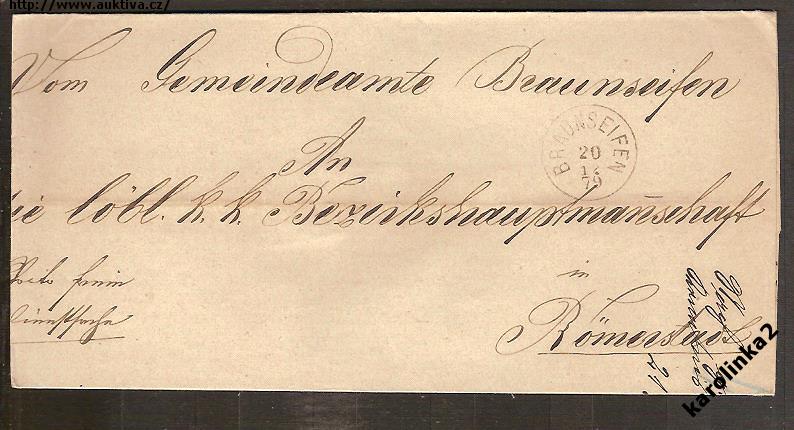 http://www.auktiva.cz/
Vom Gemeindeamte Braunseifen
BRAUNSEIFEN
20
12
79
An
die löbl. k. k. Bezirkshauptmannschaft
in
Römerstadt
Dienstsache
21.
karolinka2